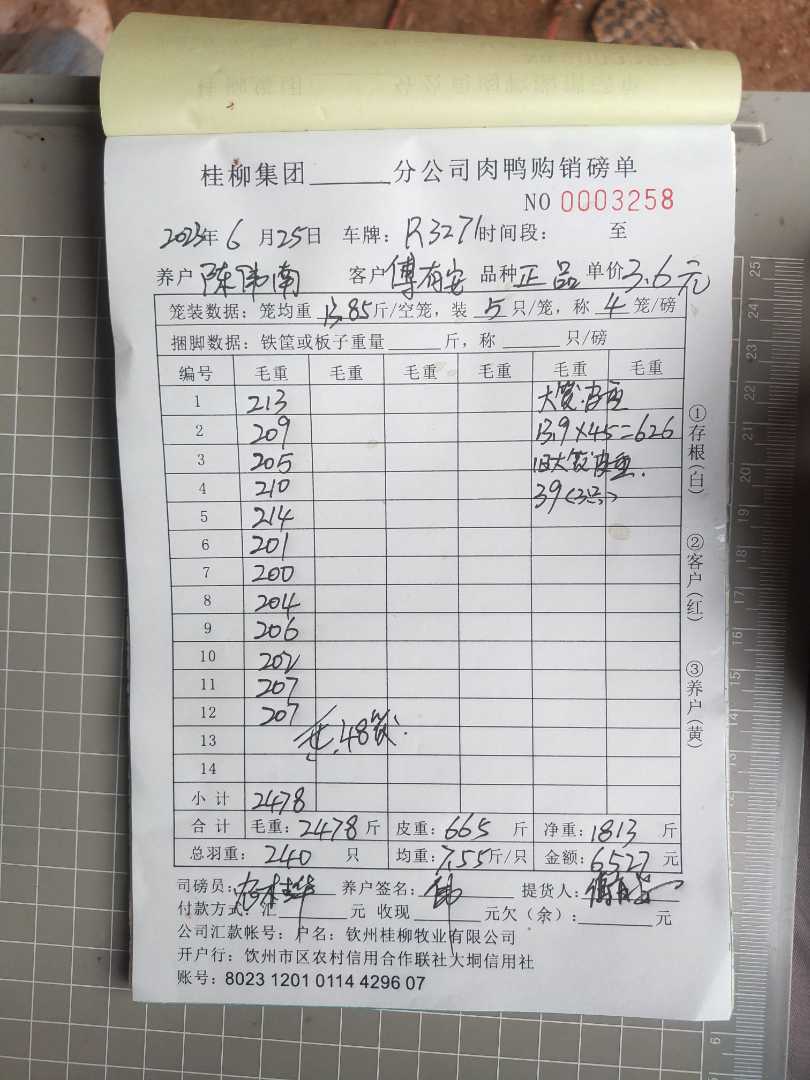 桂柳集团______分公司肉鸭购销磅单
NO 0003258
2023年 6 月 25 日 车牌: R3271 时间段: 至
养户 陈伟南 客户 傅有安 品种 正品 单价 3.6元
笼装数据: 笼均重 13.85 斤/空笼, 装 5 只/笼, 称 4 笼/磅
捆脚数据: 铁筐或板子重量______斤, 称______只/磅
编号 毛重 毛重 毛重 毛重 毛重 毛重
1 213 大笼皮重
2 209 13.9×45=626
3 205 旧大笼皮重.
4 210 39(3只)
5 214
6 201
7 200
8 204
9 206
10 202
11 207
12 207
13 共.48笼.
14
小计 2478
合计 毛重: 2478 斤 皮重: 665 斤 净重: 1813 斤
总羽重: 240 只 均重: 7.55 斤/只 金额: 6527 元
司磅员: 养户签名: 提货人:
付款方式: 汇______元 收现______元欠(余):______元
公司汇款帐号: 户名: 钦州桂柳牧业有限公司
开户行: 饮州市区农村信用合作联社大垌信用社
账号: 8023 1201 0114 4296 07
①存根(白)
②客户(红)
③养户(黄)